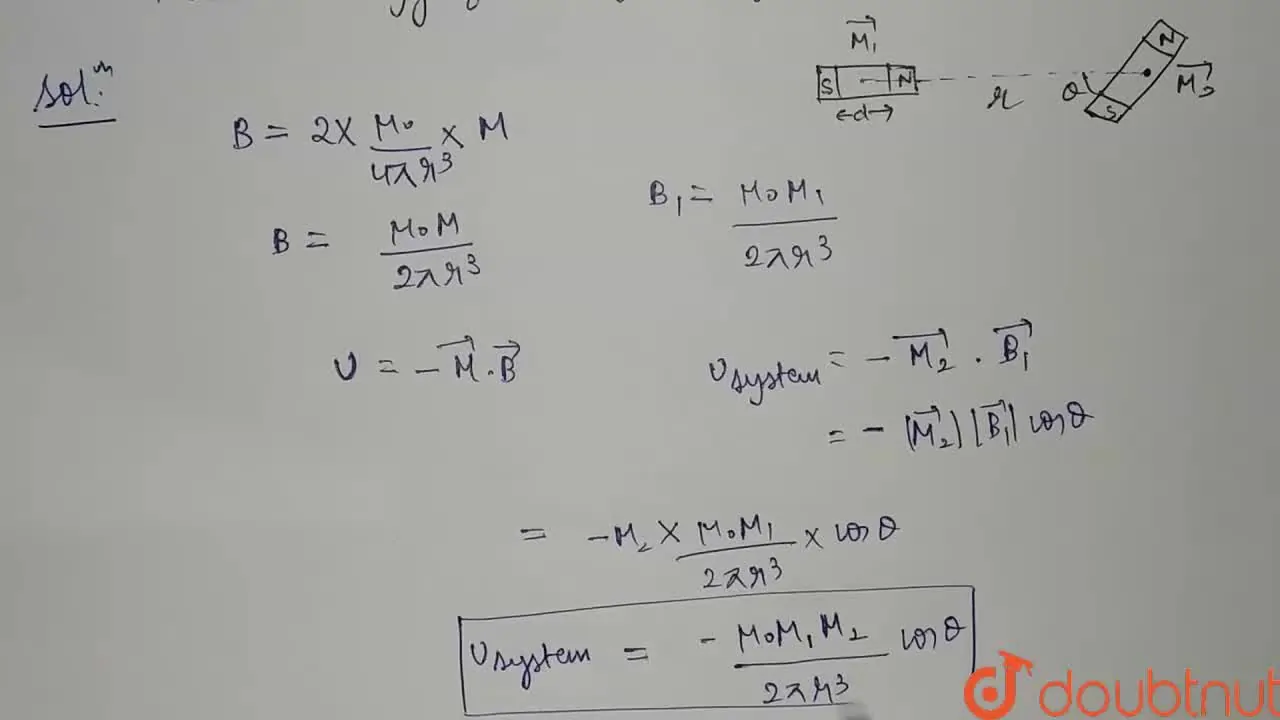 Solⁿ.
M₁
S N
←d→
r
θ
N
S
M₂
B = 2 × μ₀/4πr³ × M
B = μ₀M/2πr³
B₁ = μ₀M₁/2πr³
U = -M⃗.B⃗
U system = -M₂⃗ . B₁⃗
= - |M₂⃗| |B₁⃗| cosθ
= -M₂ × μ₀M₁/2πr³ × cosθ
U system = - μ₀M₁M₂/2πr³ cosθ
doubtnut